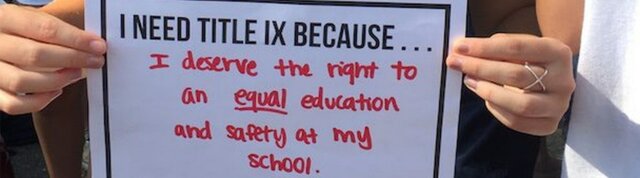 I NEED TITLE IX BECAUSE...
I deserve the right to
an equal education
and safety at my
school.